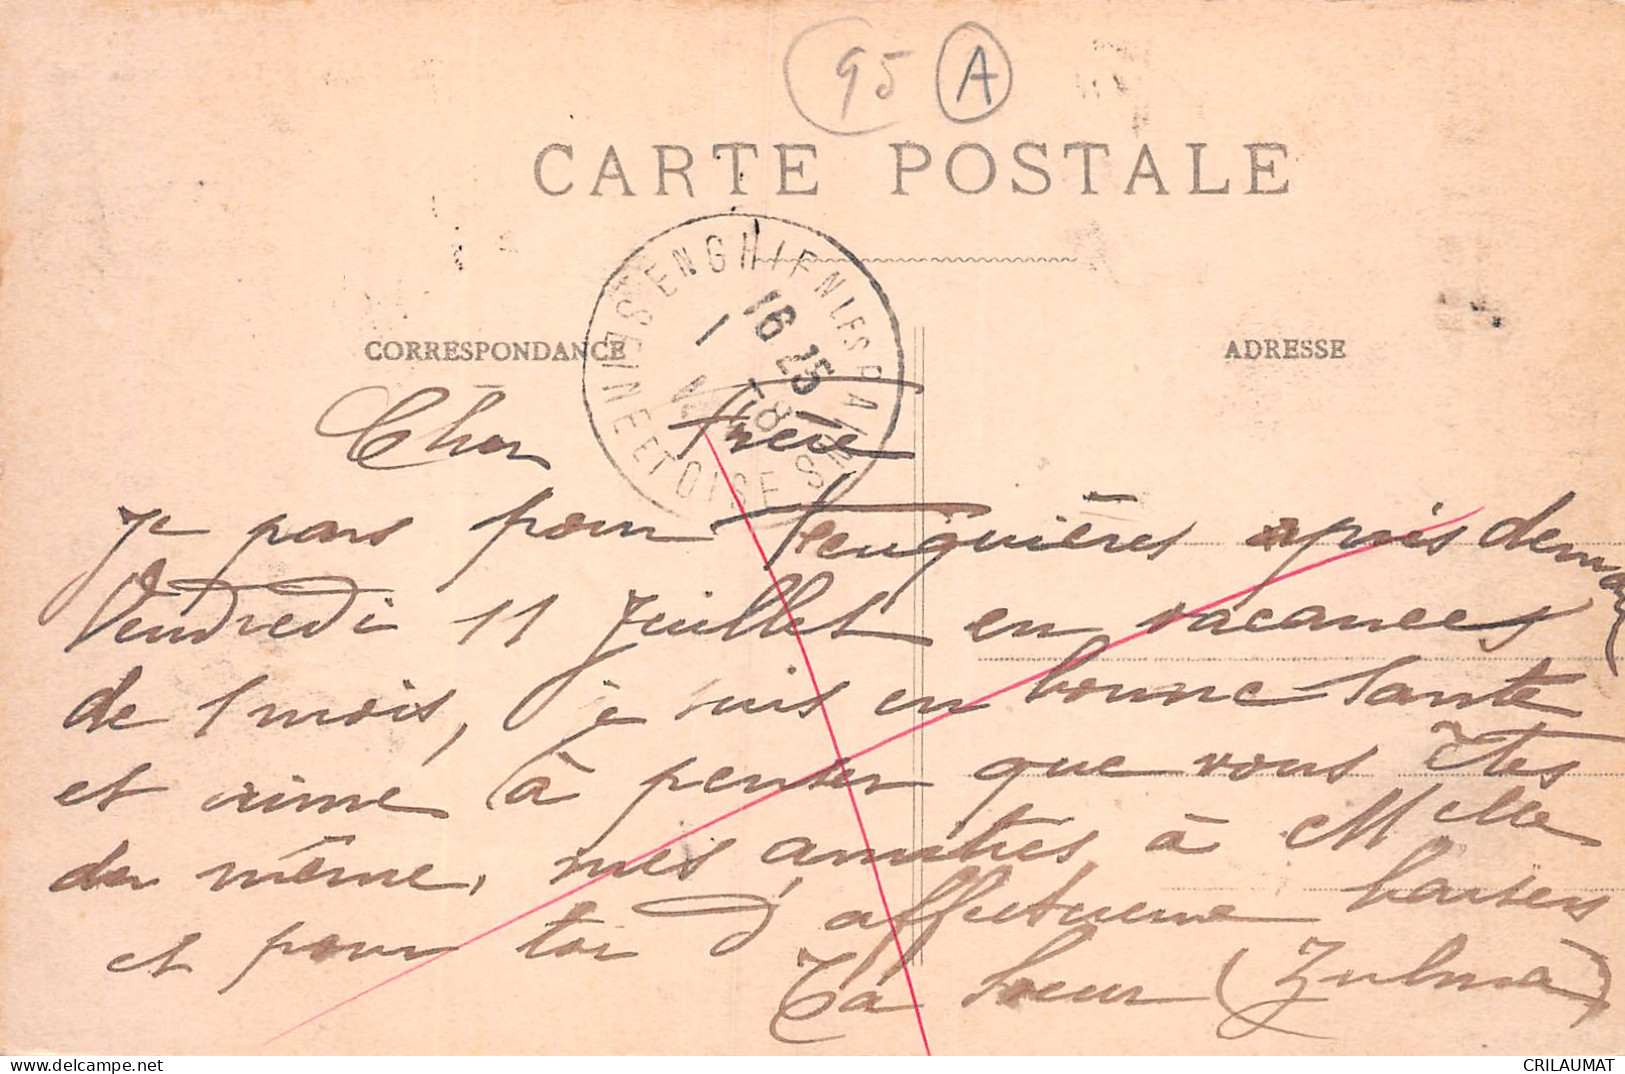 95 A
CARTE POSTALE
ENGHIEN LES BAINS
16 25
1 - 8
SEINE ET OISE
CORRESPONDANCE
ADRESSE
Cher Frère
je pars pour Feuquières après demain
Vendredi 11 Juillet en vacances
de 1 mois, je suis en bonne Sante
et aime à penser que vous êtes
de même, mes amitiés à Melle
et pour toi d'affectueux baisers
Ta Sœur (Zulma)
CRILAUMAT